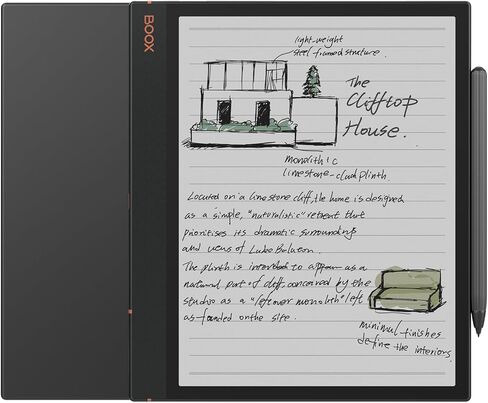 BOOX
light-weight
steel-framed structure.
The
Clifftop
House.
monolithic
limestone-clad plinth.
Located on a limestone cliff, the home is designed
as a simple, "naturalistic" retreat that
prioritises its dramatic surroundings
and views of Lake Balaton.
The plinth is intended to appear as a
natural part of cliff, conceived by the
studio as a "leftover monolith" left
as founded on the site.
minimal finishes
define the interiors.